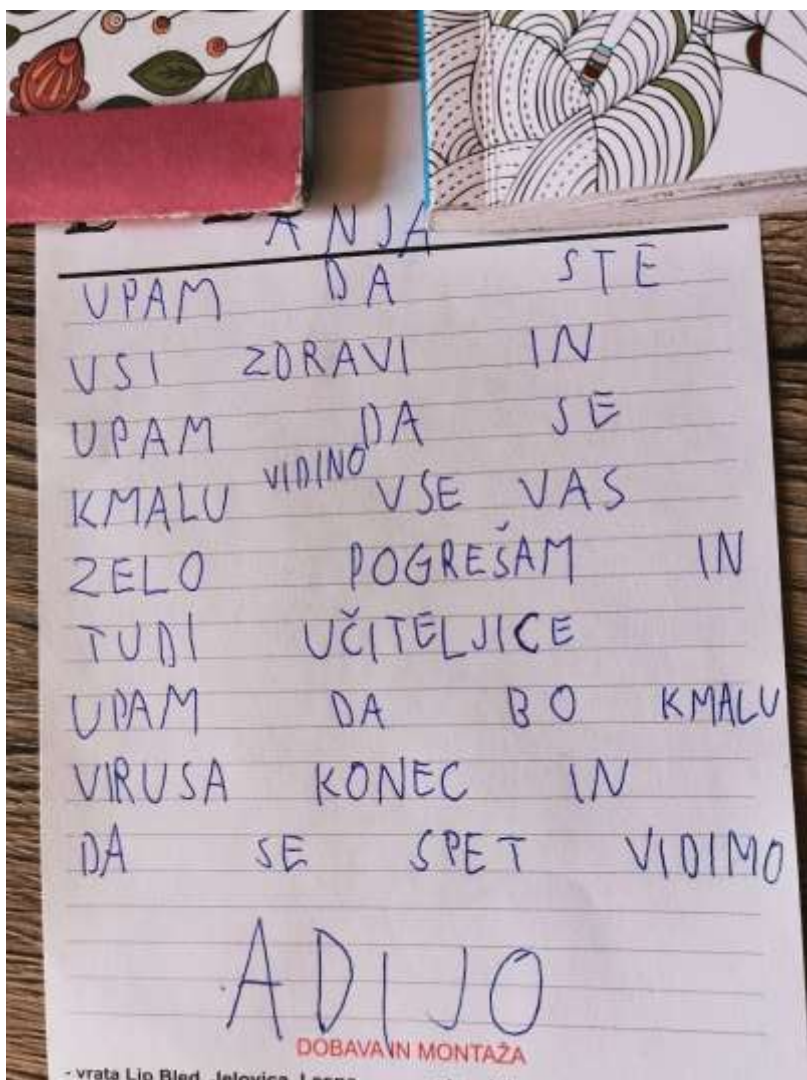 ANJA
UPAM DA STE
VSI ZDRAVI IN
UPAM DA SE
KMALU VIDINO VSE VAS
ZELO POGREŠAM IN
TUDI UČITELJICE
UPAM DA BO KMALU
VIRUSA KONEC IN
DA SE SPET VIDIMO
ADIJO
DOBAVA IN MONTAŽA
- vrata Lip Bled, Jelovica, Lesna